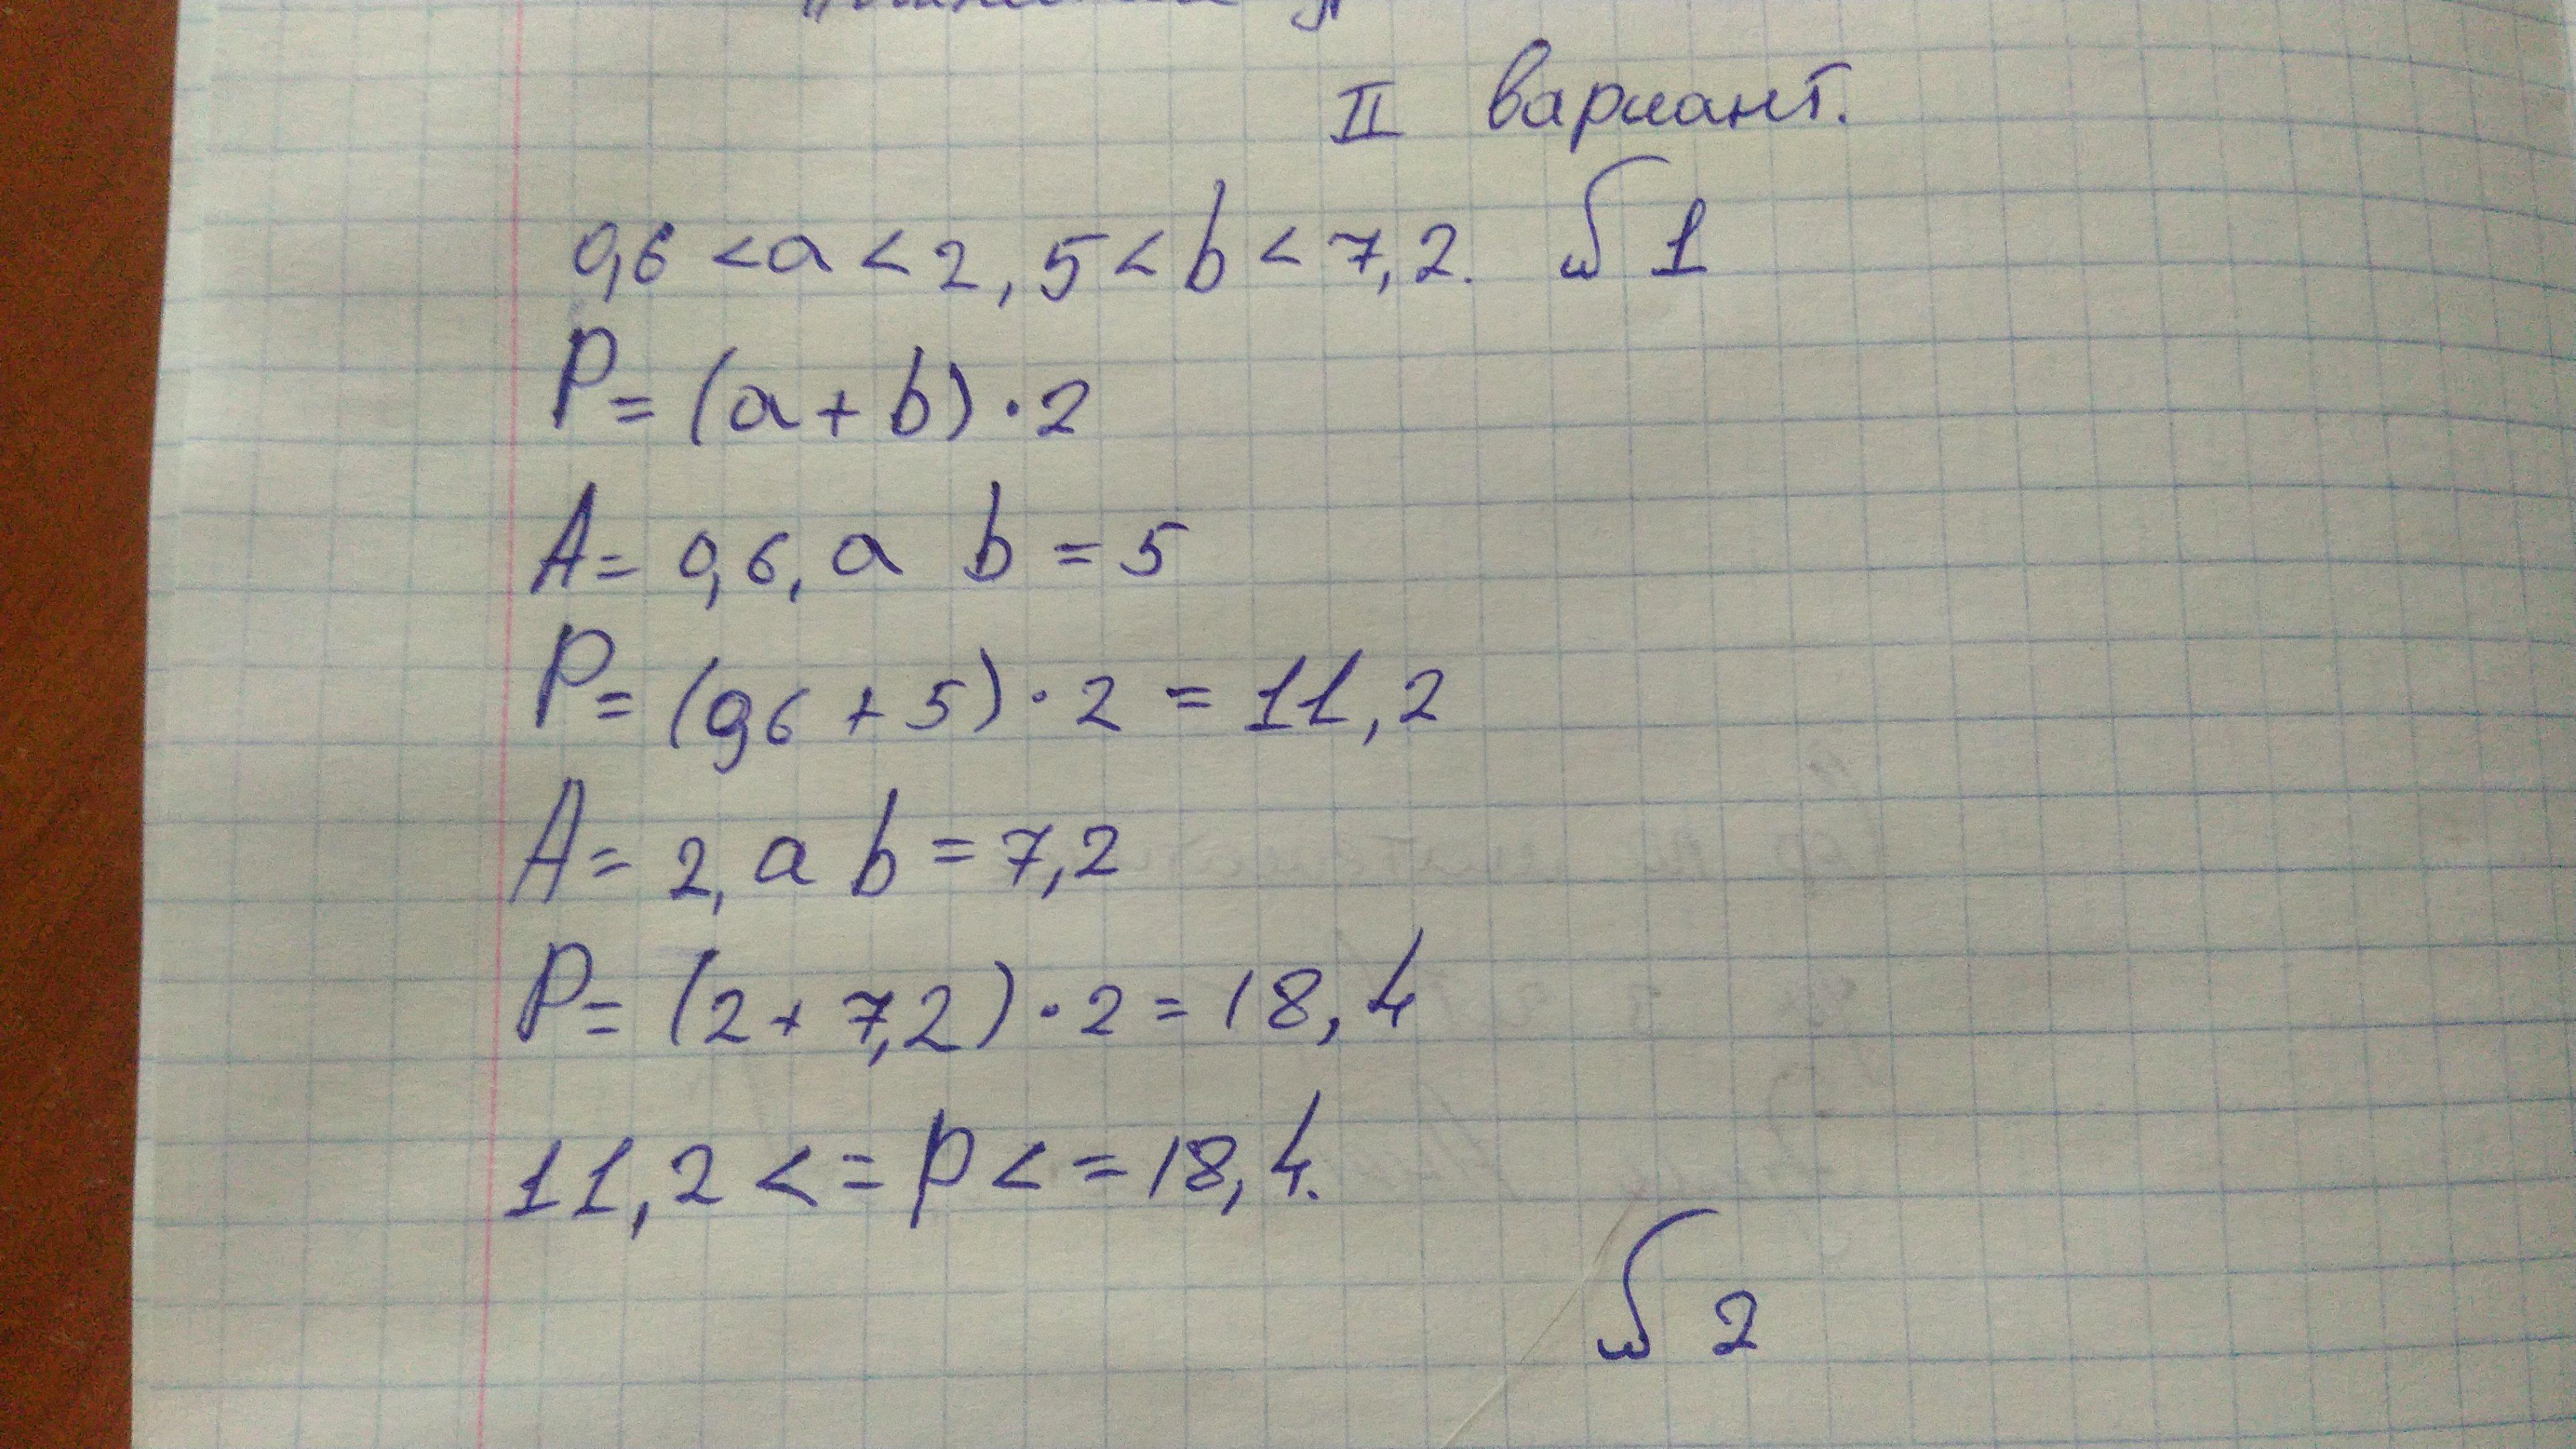 II вариант.
0,6 < a < 2, 5 < b < 7,2. № 1
P = (a + b) · 2
A = 0,6, a b = 5
P = (0,6 + 5) · 2 = 11,2
A = 2, a b = 7,2
P = (2 + 7,2) · 2 = 18,4
11,2 < = P < = 18,4.
№ 2